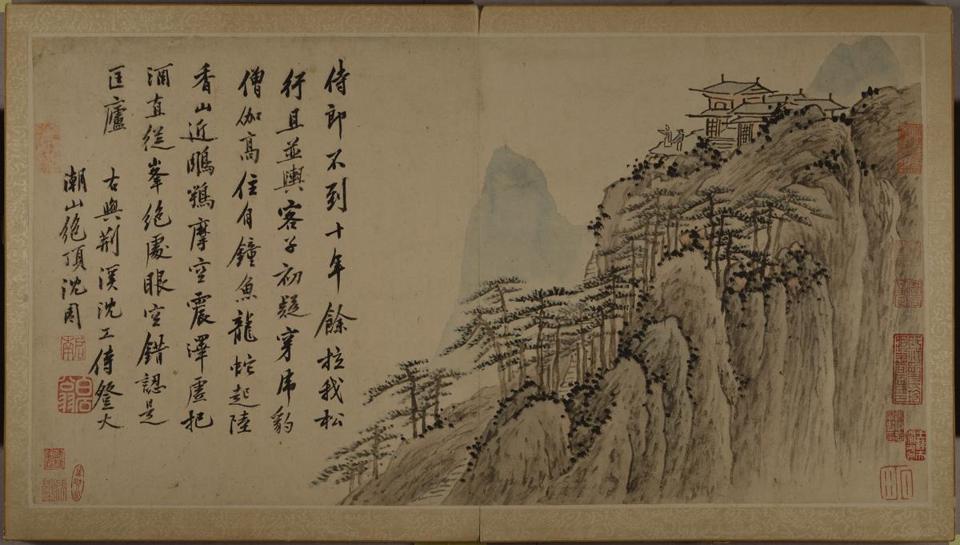 侍郎不到十年餘拉我松
行且並輿客子初疑穿虎豹
僧伽高住有鐘魚龍蛇起陸
香山近鵰鶚摩空震澤虛把
酒直從峯絕處眼空錯認是
匡廬 右與荊溪沈工侍登大
潮山絕頂沈周
啟南
白石翁